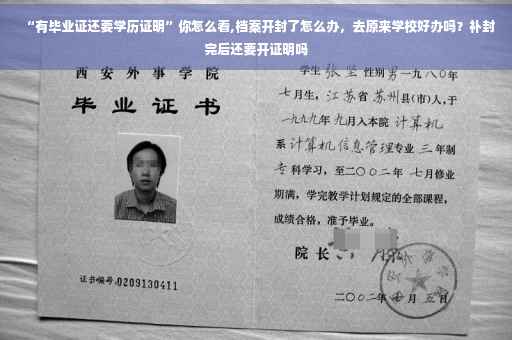 “有毕业证还要学历证明”你怎么看,档案开封了怎么办，去原来学校好办吗？补封
完后还要开证明吗
西安外事学院
毕业证书
证书编号:0209130411
学生 张坚 性别 男 一九八〇年
七月生，江苏省苏州县(市)人,于
一九九九年九月入本院 计算机
系 计算机信息管理专业 三年制
专科学习，至二〇〇二年 七月修业
期满，学完教学计划规定的全部课程，
成绩合格，准予毕业。
院长
二〇〇二年 七月 五日